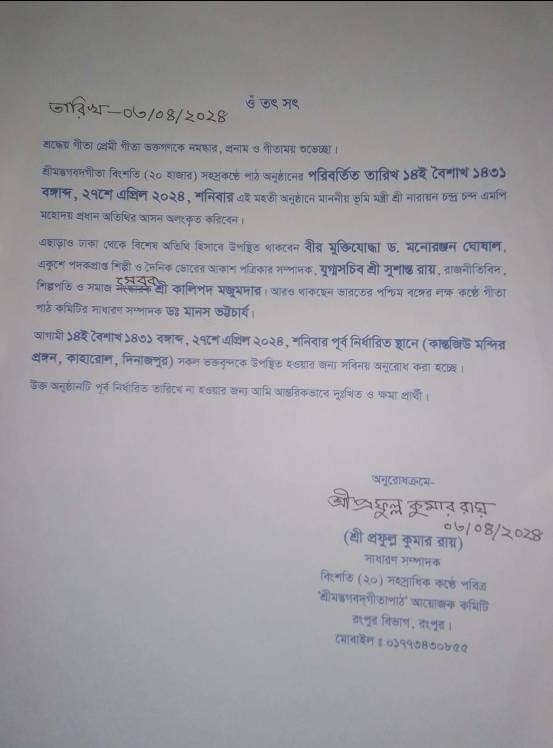 ওঁ তৎ সৎ
তারিখ—০৬/০৪/২০২৪
শ্রদ্ধেয় গীতা প্রেমী গীতা ভক্তগণকে নমস্কার, প্রনাম ও গীতাময় শুভেচ্ছা।
শ্রীমদ্ভগবদগীতা বিংশতি (২০ হাজার) সহস্রকণ্ঠে পাঠ অনুষ্ঠানের পরিবর্তিত তারিখ ১৪ই বৈশাখ ১৪৩১
বঙ্গাব্দ, ২৭শে এপ্রিল ২০২৪, শনিবার এই মহতী অনুষ্ঠানে মাননীয় ভূমি মন্ত্রী শ্রী নারায়ন চন্দ্র চন্দ এমপি
মহোদয় প্রধান অতিথির আসন অলংকৃত করিবেন।
এছাড়াও ঢাকা থেকে বিশেষ অতিথি হিসাবে উপস্থিত থাকবেন বীর মুক্তিযোদ্ধা ড. মনোরঞ্জন ঘোষাল,
একুশে পদকপ্রাপ্ত শিল্পী ও দৈনিক ভোরের আকাশ পত্রিকার সম্পাদক, যুগ্মসচিব শ্রী সুশান্ত রায়, রাজনীতিবিদ,
শিল্পপতি ও সমাজ সেবক শ্রী কালিপদ মজুমদার। আরও থাকছেন ভারতের পশ্চিম বঙ্গের লক্ষ কণ্ঠে গীতা
পাঠ কমিটির সাধারণ সম্পাদক ডঃ মানস ভট্টাচার্য।
আগামী ১৪ই বৈশাখ ১৪৩১ বঙ্গাব্দ, ২৭শে এপ্রিল ২০২৪, শনিবার পূর্ব নির্ধারিত স্থানে (কান্তজিউ মন্দির
প্রাঙ্গন, কাহারোল, দিনাজপুর) সকল ভক্তবৃন্দকে উপস্থিত হওয়ার জন্য সবিনয় অনুরোধ করা হচ্ছে।
উক্ত অনুষ্ঠানটি পূর্ব নির্ধারিত তারিখে না হওয়ার জন্য আমি আন্তরিকভাবে দুঃখিত ও ক্ষমা প্রার্থী।
অনুরোধক্রমে-
শ্রী প্রফুল্ল কুমার রায়
০৬/০৪/২০২৪
(শ্রী প্রফুল্ল কুমার রায়)
সাধারণ সম্পাদক
বিংশতি (২০) সহস্রাধিক কণ্ঠে পবিত্র
'শ্রীমদ্ভগবদ্গীতাপাঠ' আয়োজক কমিটি
রংপুর বিভাগ, রংপুর।
মোবাইল ঃ ০১৭৭৩৪৩০৮৫৫